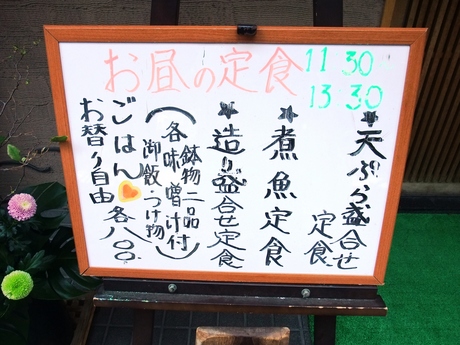 お昼の定食
11 30
13 30
★天ぷら盛合せ
定食
★煮魚定食
★造り盛合せ定食
(鉢物一品
各味噌汁付
御飯つけ物)
ごはん
お替り自由
各八〇〇